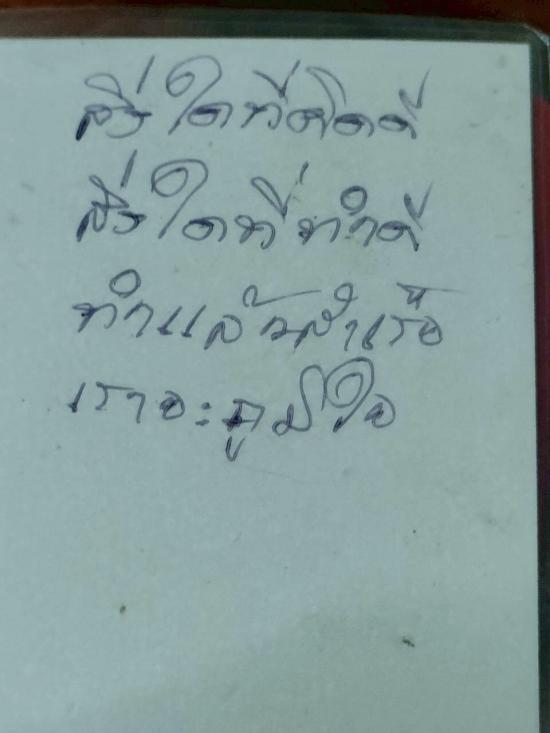 สิ่งใดที่คิดดี
สิ่งใดที่ทำดี
ทำแล้วสำเร็จ
เราจะภูมิใจ